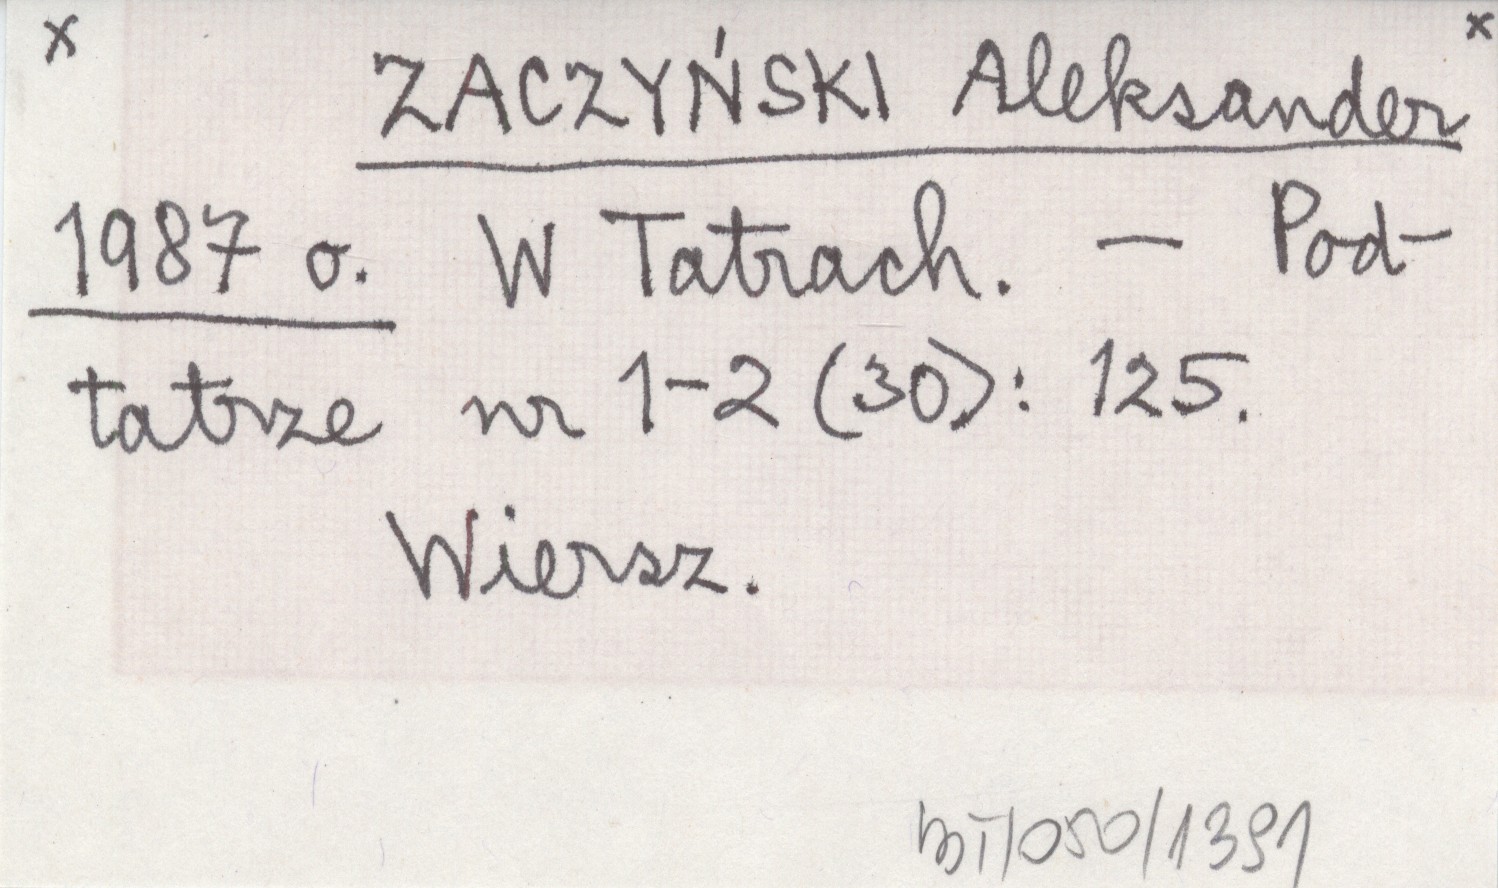 x x
ZACZYŃSKI Aleksander
1987 o. W Tatrach. — Pod-
tatrze nr 1-2 (30): 125.
Wiersz.
BT/050/1391